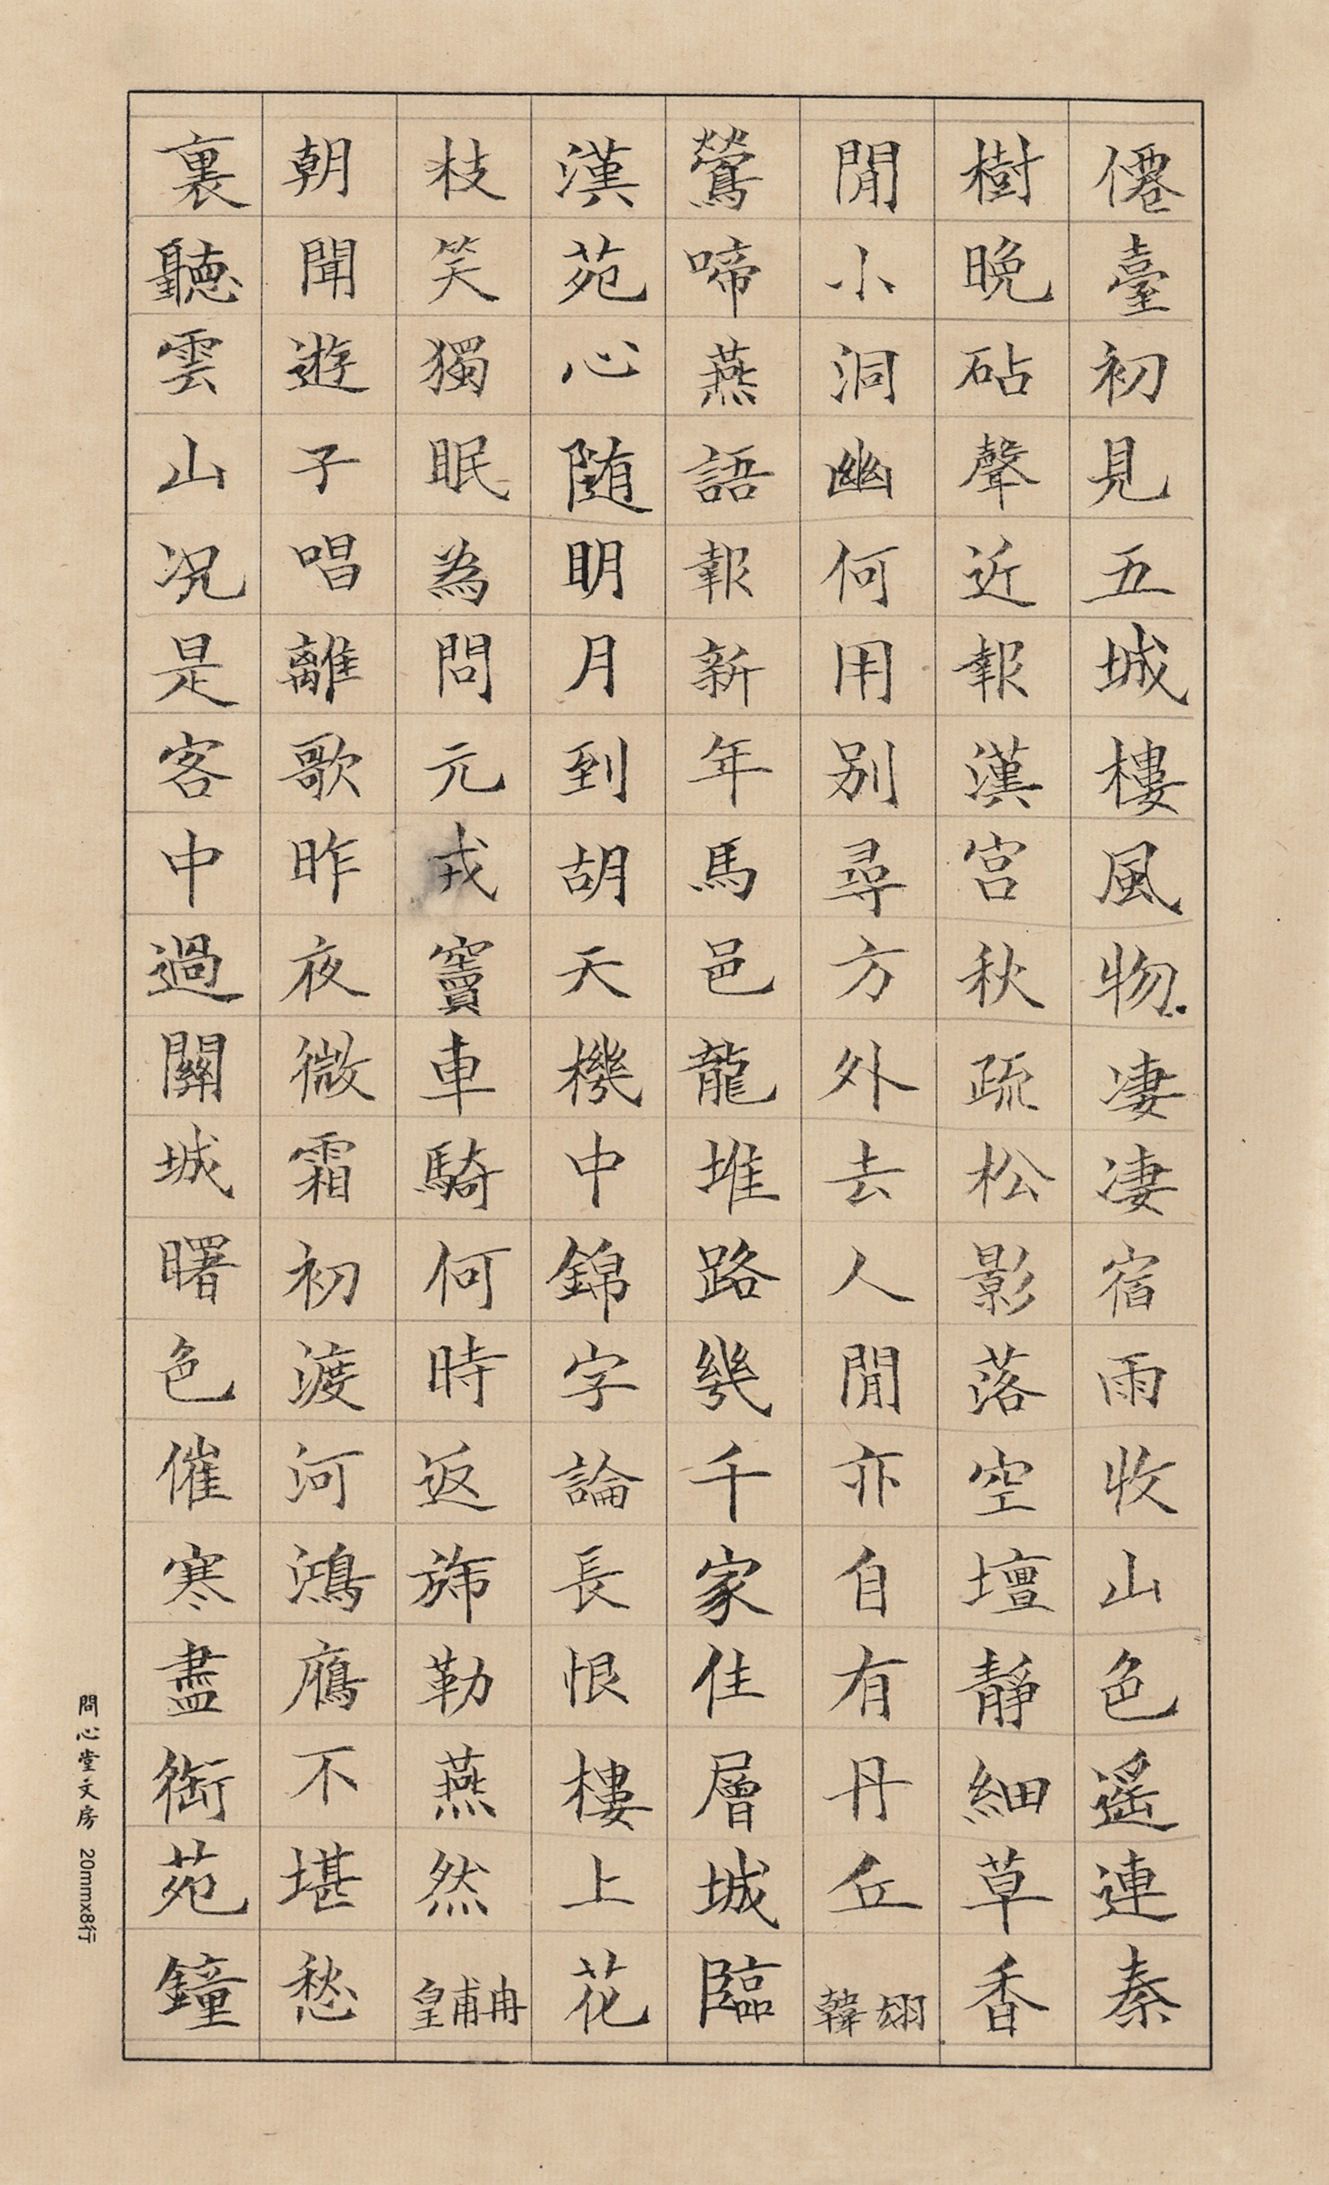 僊臺初見五城樓風物凄凄宿雨收山色遙連秦
樹晚砧聲近報漢宮秋疏松影落空壇靜細草香
閒小洞幽何用別尋方外去人閒亦自有丹丘韓翃
鶯啼燕語報新年馬邑龍堆路幾千家住層城臨
漢苑心随明月到胡天機中錦字論長恨樓上花
枝笑獨眠為問元戎竇車騎何時返旆勒燕然皇甫冉
朝聞遊子唱離歌昨夜微霜初渡河鴻鴈不堪愁
裏聽雲山況是客中過關城曙色催寒盡御苑鐘
問心堂文房 20mmx8行